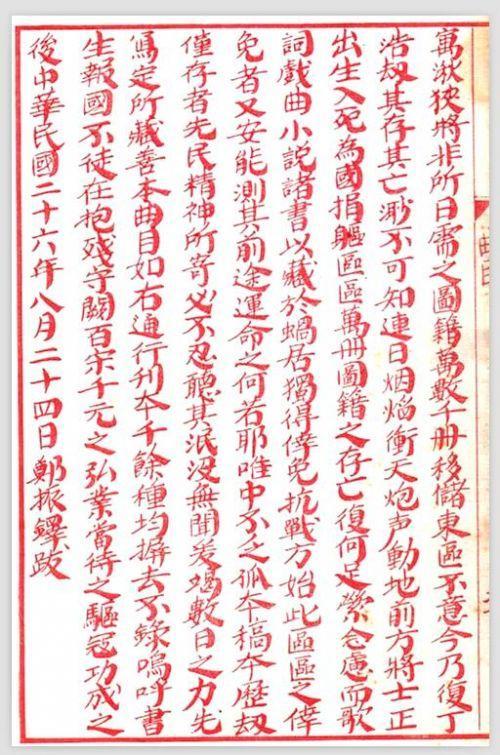 寓濒狭將非所日需之圖籍萬數千册移儲東區不意今乃復丁
浩劫其存其亡渺不可知連日烟焰衝天炮声動地前方將士正
出生入死為國捐軀區區萬册圖籍之存亡復何足縈念慮而歌
詞戲曲小説諸書以藏於蝸居獨得倖免抗戰方始此區區之倖
免者又安能測其前途運命之何若耶唯中不乏孤本稿本歷劫
僅存者先民精神所寄必不忍聽其泯没無聞爰竭數日之力先
寫定所藏善本曲目如右通行刊本千餘種均摒去不錄嗚呼書
生報國不徒在抱残守闕百宋千元之弘業當待之驅寇功成之
後中華民國二十六年八月二十四日鄭振鐸跋
曲目